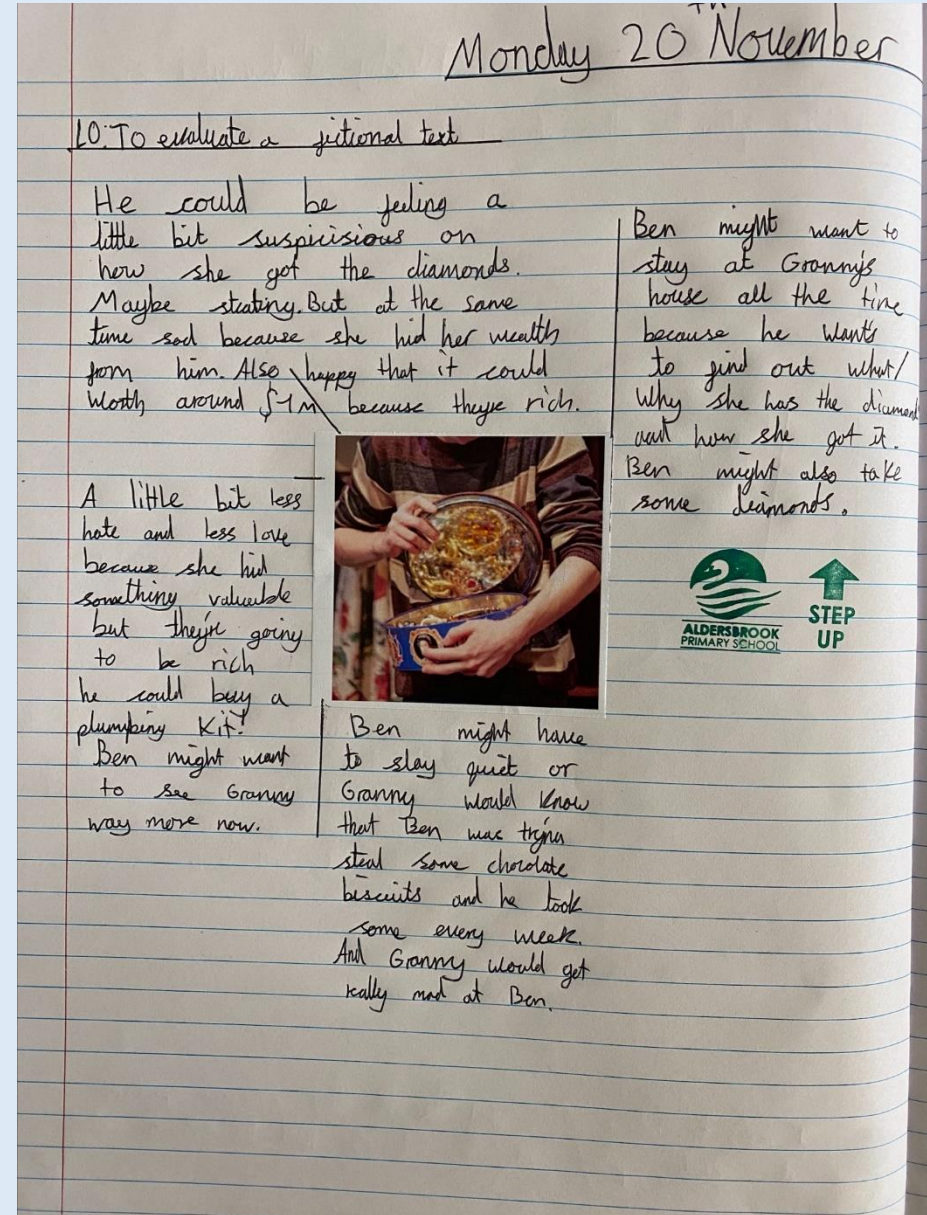 Monday 20th November
LO: To evaluate a fictional text
He could be feeling a
little bit suspicisious on
how she got the diamonds.
Maybe steating. But at the same
time sad because she hid her wealth
from him. Also happy that it could
Worth around $1M because theyre rich.
A little bit less
hate and less love
because she hid
something valuable
but they're going
to be rich
he could buy a
plumbing Kit!
Ben might want
to see Granny
way more now.
Ben might have
to stay quiet or
Granny would know
that Ben was tryna
steal some chocolate
biscuits and he took
some every week.
And Granny would get
really mad at Ben.
Ben might want to
stay at Granny's
house all the time
because he wants
to find out what/
Why she has the diamond
and how she got it.
Ben might also take
some diamonds.
ALDERSBROOK
PRIMARY SCHOOL
STEP
UP